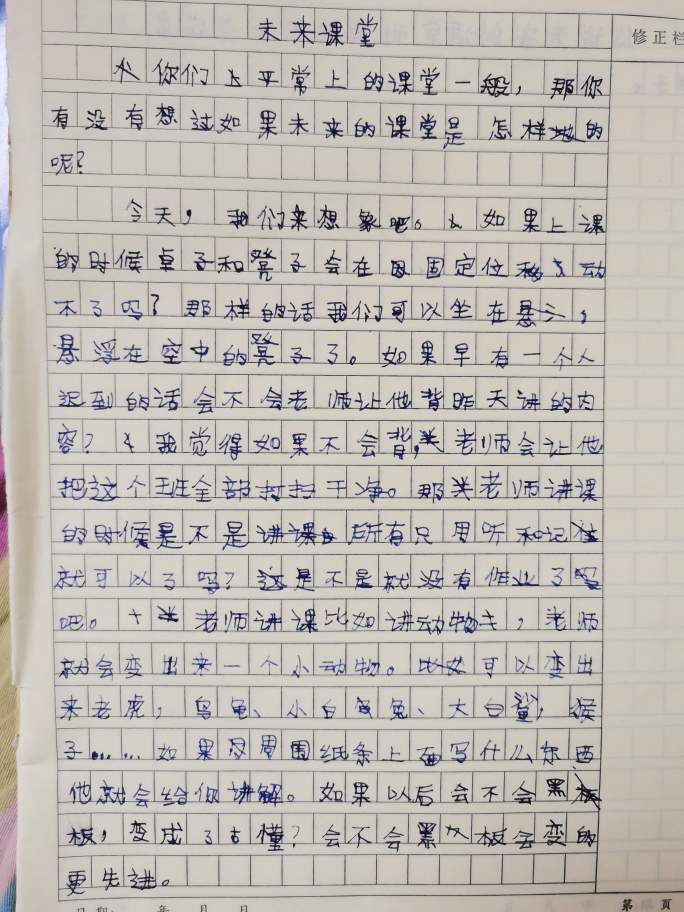 未来课堂
修正栏
你们上平常上的课堂一般，那你
有没有想过如果未来的课堂是怎样地的
呢？
今天，我们来想象吧。如果上课
的时候桌子和凳子会在固定位移动
不了吗？那样的话我们可以坐在悬，
悬浮在空中的凳子了。如果早有一个人
迟到的话会不会老师让他背昨天讲的内
容？我觉得如果不会背，老师会让他
把这个班全部打扫干净。那老师讲课
的时候是不是讲课 所有只用听和记住
就可以了吗？这是不是就没有作业了吗
吧。老师讲课比如讲动物，老师
就会变出来一个小动物。可以变出
来老虎，乌龟、小白兔、大白鲨，猴
子……如果周围纸条上面写什么东西
他就会给你讲解。如果以后会不会黑板
板，变成了古懂？会不会黑板会变的
更先进。
日期： 年 月 日
第 页